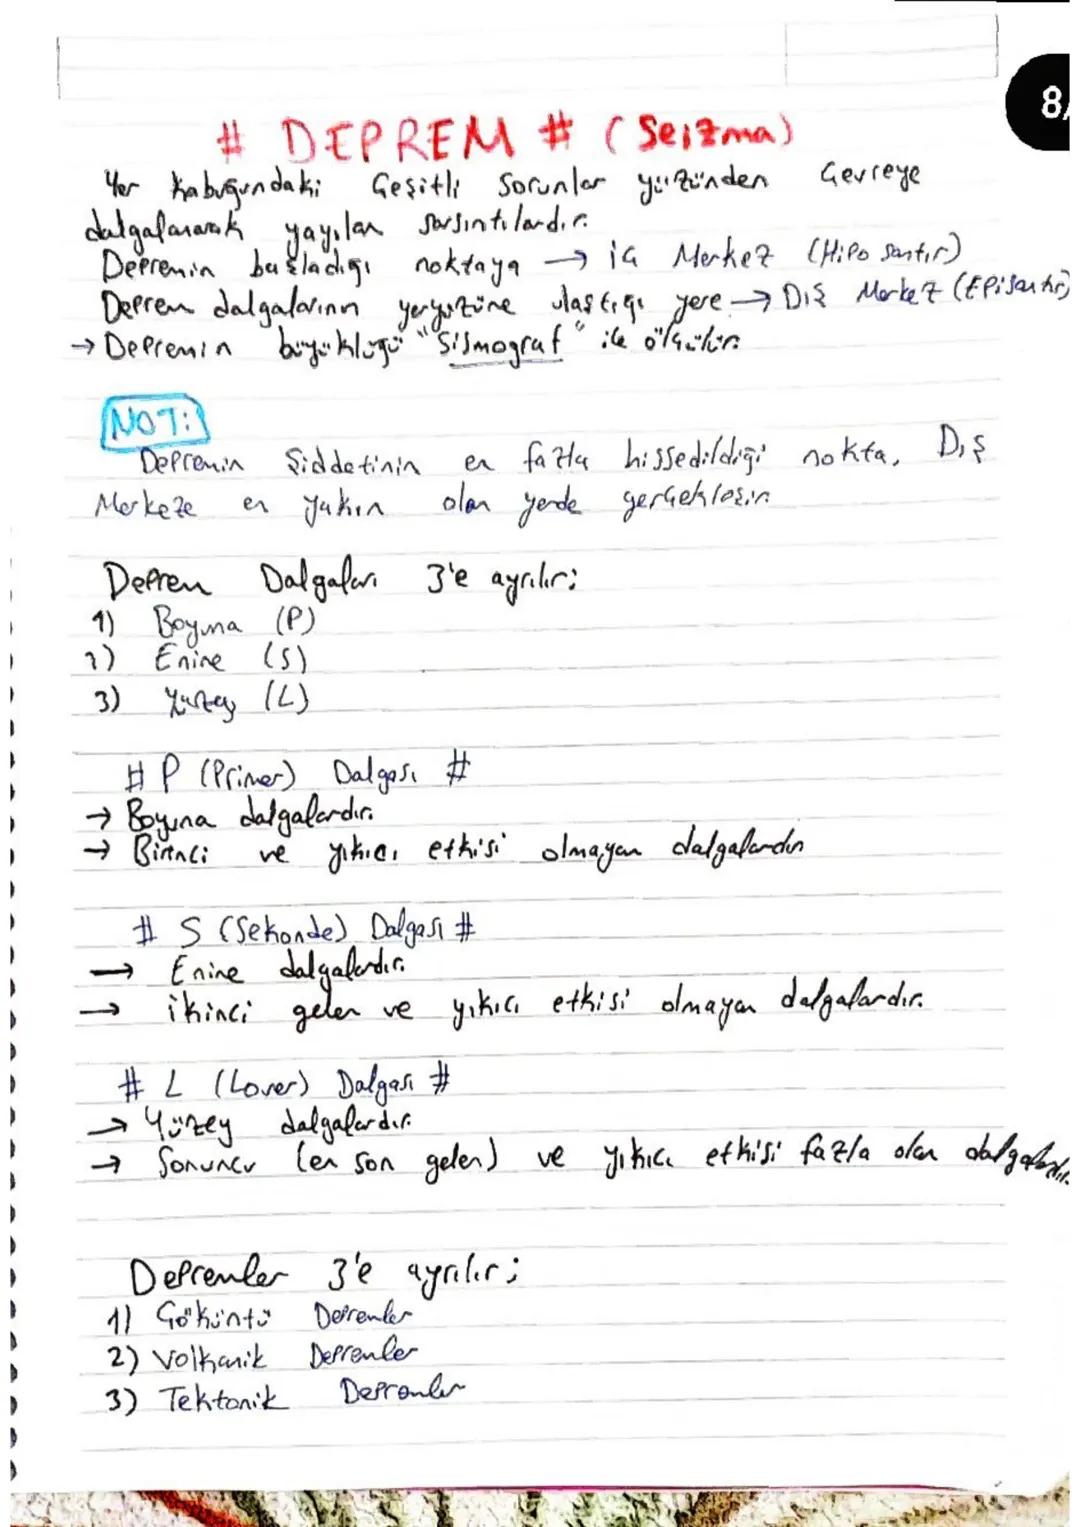 8/
# DEPREM # (Seizma)
Yer Kabuğundaki Çeşitli Sorunlar yüzünden Çevreye
dalgalanarak yayılan sarsıntılardır.
Depremin başladığı noktaya → iç Merkez (Hipo santır)
Deprem dalgalarının yeryüzüne ulaştığı yere → Dış Merkez (EPİsantır)
→ Depremin büyüklüğü "Sismograf" ile ölçülür.
NOT:
Depremin Şiddetinin en fazla hissedildiği nokta, Dış
Merkeze en yakın olan yerde gerçekleşir.
Deprem Dalgaları 3'e ayrılır;
1) Boyuna (P)
2) Enine (S)
3) Yüzey (L)
# P (Primer) Dalgası #
→ Boyuna dalgalardır.
→ Birinci ve yıkıcı etkisi olmayan dalgalardır
# S (Sekonde) Dalgası #
→ Enine dalgalardır.
→ ikinci gelen ve yıkıcı etkisi olmayan dalgalardır.
# L (Lover) Dalgası #
→ Yüzey dalgalardır.
→ Sonuncu (en son gelen) ve yıkıcı etkisi fazla olan dalgalardır.
Depremler 3'e ayrılır;
1) Çöküntü Depremler
2) Volkanik Depremler
3) Tektonik Depremler